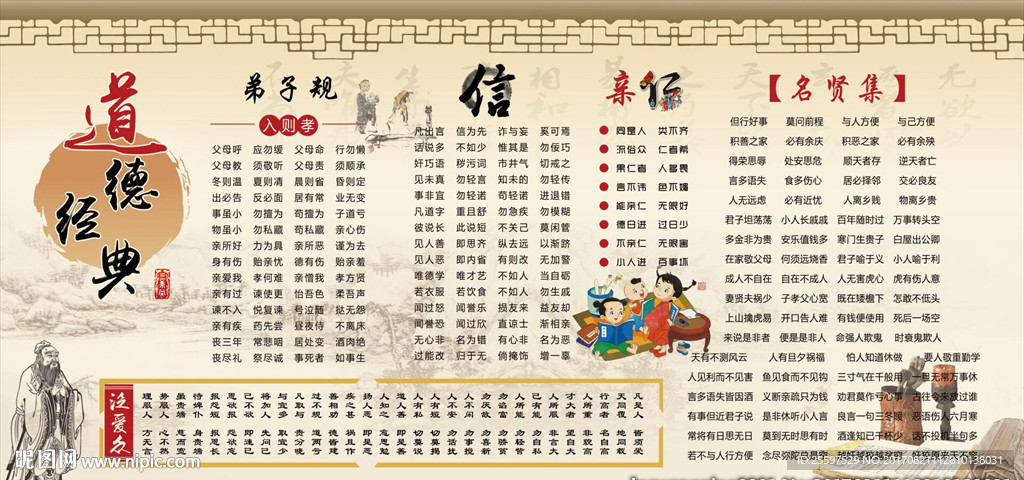 道德经典
弟子规
入则孝
父母呼 应勿缓 父母命 行勿懒
父母教 须敬听 父母责 须顺承
冬则温 夏则凊 晨则省 昏则定
出必告 反必面 居有常 业无变
事虽小 勿擅为 苟擅为 子道亏
物虽小 勿私藏 苟私藏 亲心伤
亲所好 力为具 亲所恶 谨为去
身有伤 贻亲忧 德有伤 贻亲羞
亲爱我 孝何难 亲憎我 孝方贤
亲有过 谏使更 怡吾色 柔吾声
谏不入 悦复谏 号泣随 挞无怨
亲有疾 药先尝 昼夜侍 不离床
丧三年 常悲咽 居处变 酒肉绝
丧尽礼 祭尽诚 事死者 如事生
信
凡出言 信为先 诈与妄 奚可焉
话说多 不如少 惟其是 勿佞巧
奸巧语 秽污词 市井气 切戒之
见未真 勿轻言 知未的 勿轻传
事非宜 勿轻诺 苟轻诺 进退错
凡道字 重且舒 勿急疾 勿模糊
彼说长 此说短 不关己 莫闲管
见人善 即思齐 纵去远 以渐跻
见人恶 即内省 有则改 无加警
唯德学 唯才艺 不如人 当自砺
若衣服 若饮食 不如人 勿生戚
闻过怒 闻誉乐 损友来 益友却
闻誉恐 闻过欣 直谅士 渐相亲
无心非 名为错 有心非 名为恶
过能改 归于无 倘掩饰 增一辜
亲仁
同是人 类不齐
流俗众 仁者希
果仁者 人多畏
言不讳 色不媚
能亲仁 无限好
德日进 过日少
不亲仁 无限害
小人进 百事坏
【名贤集】
但行好事 莫问前程 与人方便 与己方便
积善之家 必有余庆 积恶之家 必有余殃
得荣思辱 处安思危 顺天者存 逆天者亡
言多语失 食多伤心 居必择邻 交必良友
人无远虑 必有近忧 人离乡贱 物离乡贵
君子坦荡荡 小人长戚戚 百年随时过 万事转头空
多金非为贵 安乐值钱多 寒门生贵子 白屋出公卿
在家敬父母 何须远烧香 君子喻于义 小人喻于利
成人不自在 自在不成人 人无害虎心 虎有伤人意
妻贤夫祸少 子孝父心宽 既在矮檐下 怎敢不低头
上山擒虎易 开口告人难 有钱便使用 死后一场空
来说是非者 便是是非人 命强人欺鬼 时衰鬼欺人
天有不测风云 人有旦夕祸福 怕人知道休做 要人敬重勤学
人见利而不见害 鱼见食而不见钩 三寸气在千般用 一旦无常万事休
言多语失皆因酒 义断亲疏只为钱 劝君莫作亏心事 古往今来放过谁
有事但近君子说 是非休听小人言 良言一句三冬暖 恶语伤人六月寒
常将有日思无日 莫到无时思有时 酒逢知己千杯少 话不投机半句多
若不与人行方便 念尽弥陀总是空
泛爱众
凡是人 皆须爱
天同覆 地同载
行高者 名自高
才大者 望自大
己有能 勿自私
人有短 切莫揭
人有私 切莫说
道人善 即是善
扬人恶 即是恶
昵图网 www.nipic.com
ID:23597529 NO:20170821112810138031